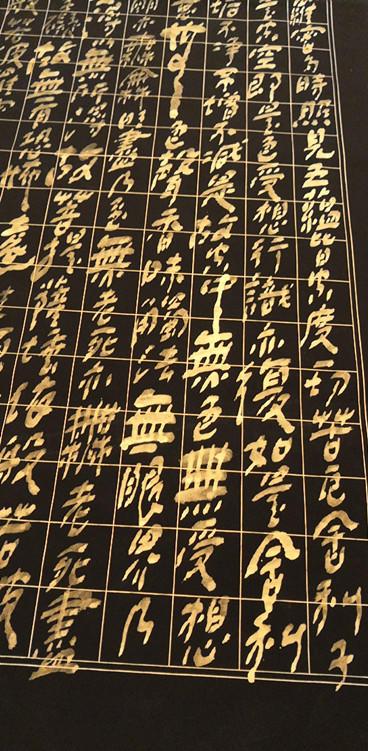 羅蜜多時照見五蘊皆空度一切苦厄舍利子
空即是色受想行識亦復如是舍利
垢不淨不增不減是故空中無色無受想
色聲香味觸法無眼界乃
無明盡乃至無老死亦無老死盡
無所得故菩提薩埵依般若波
故無有恐怖遠